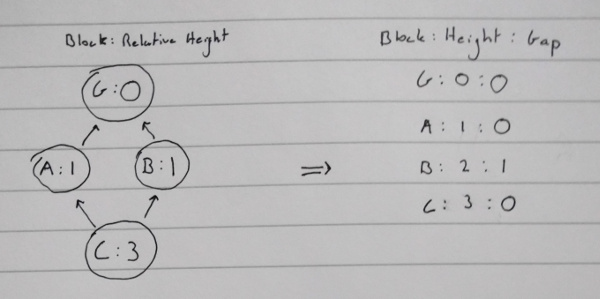 Block: Relative Height
G:0
A:1
B:1
C:3
Block: Height: Gap
G: 0:0
A: 1: 0
B: 2: 1
C: 3: 0